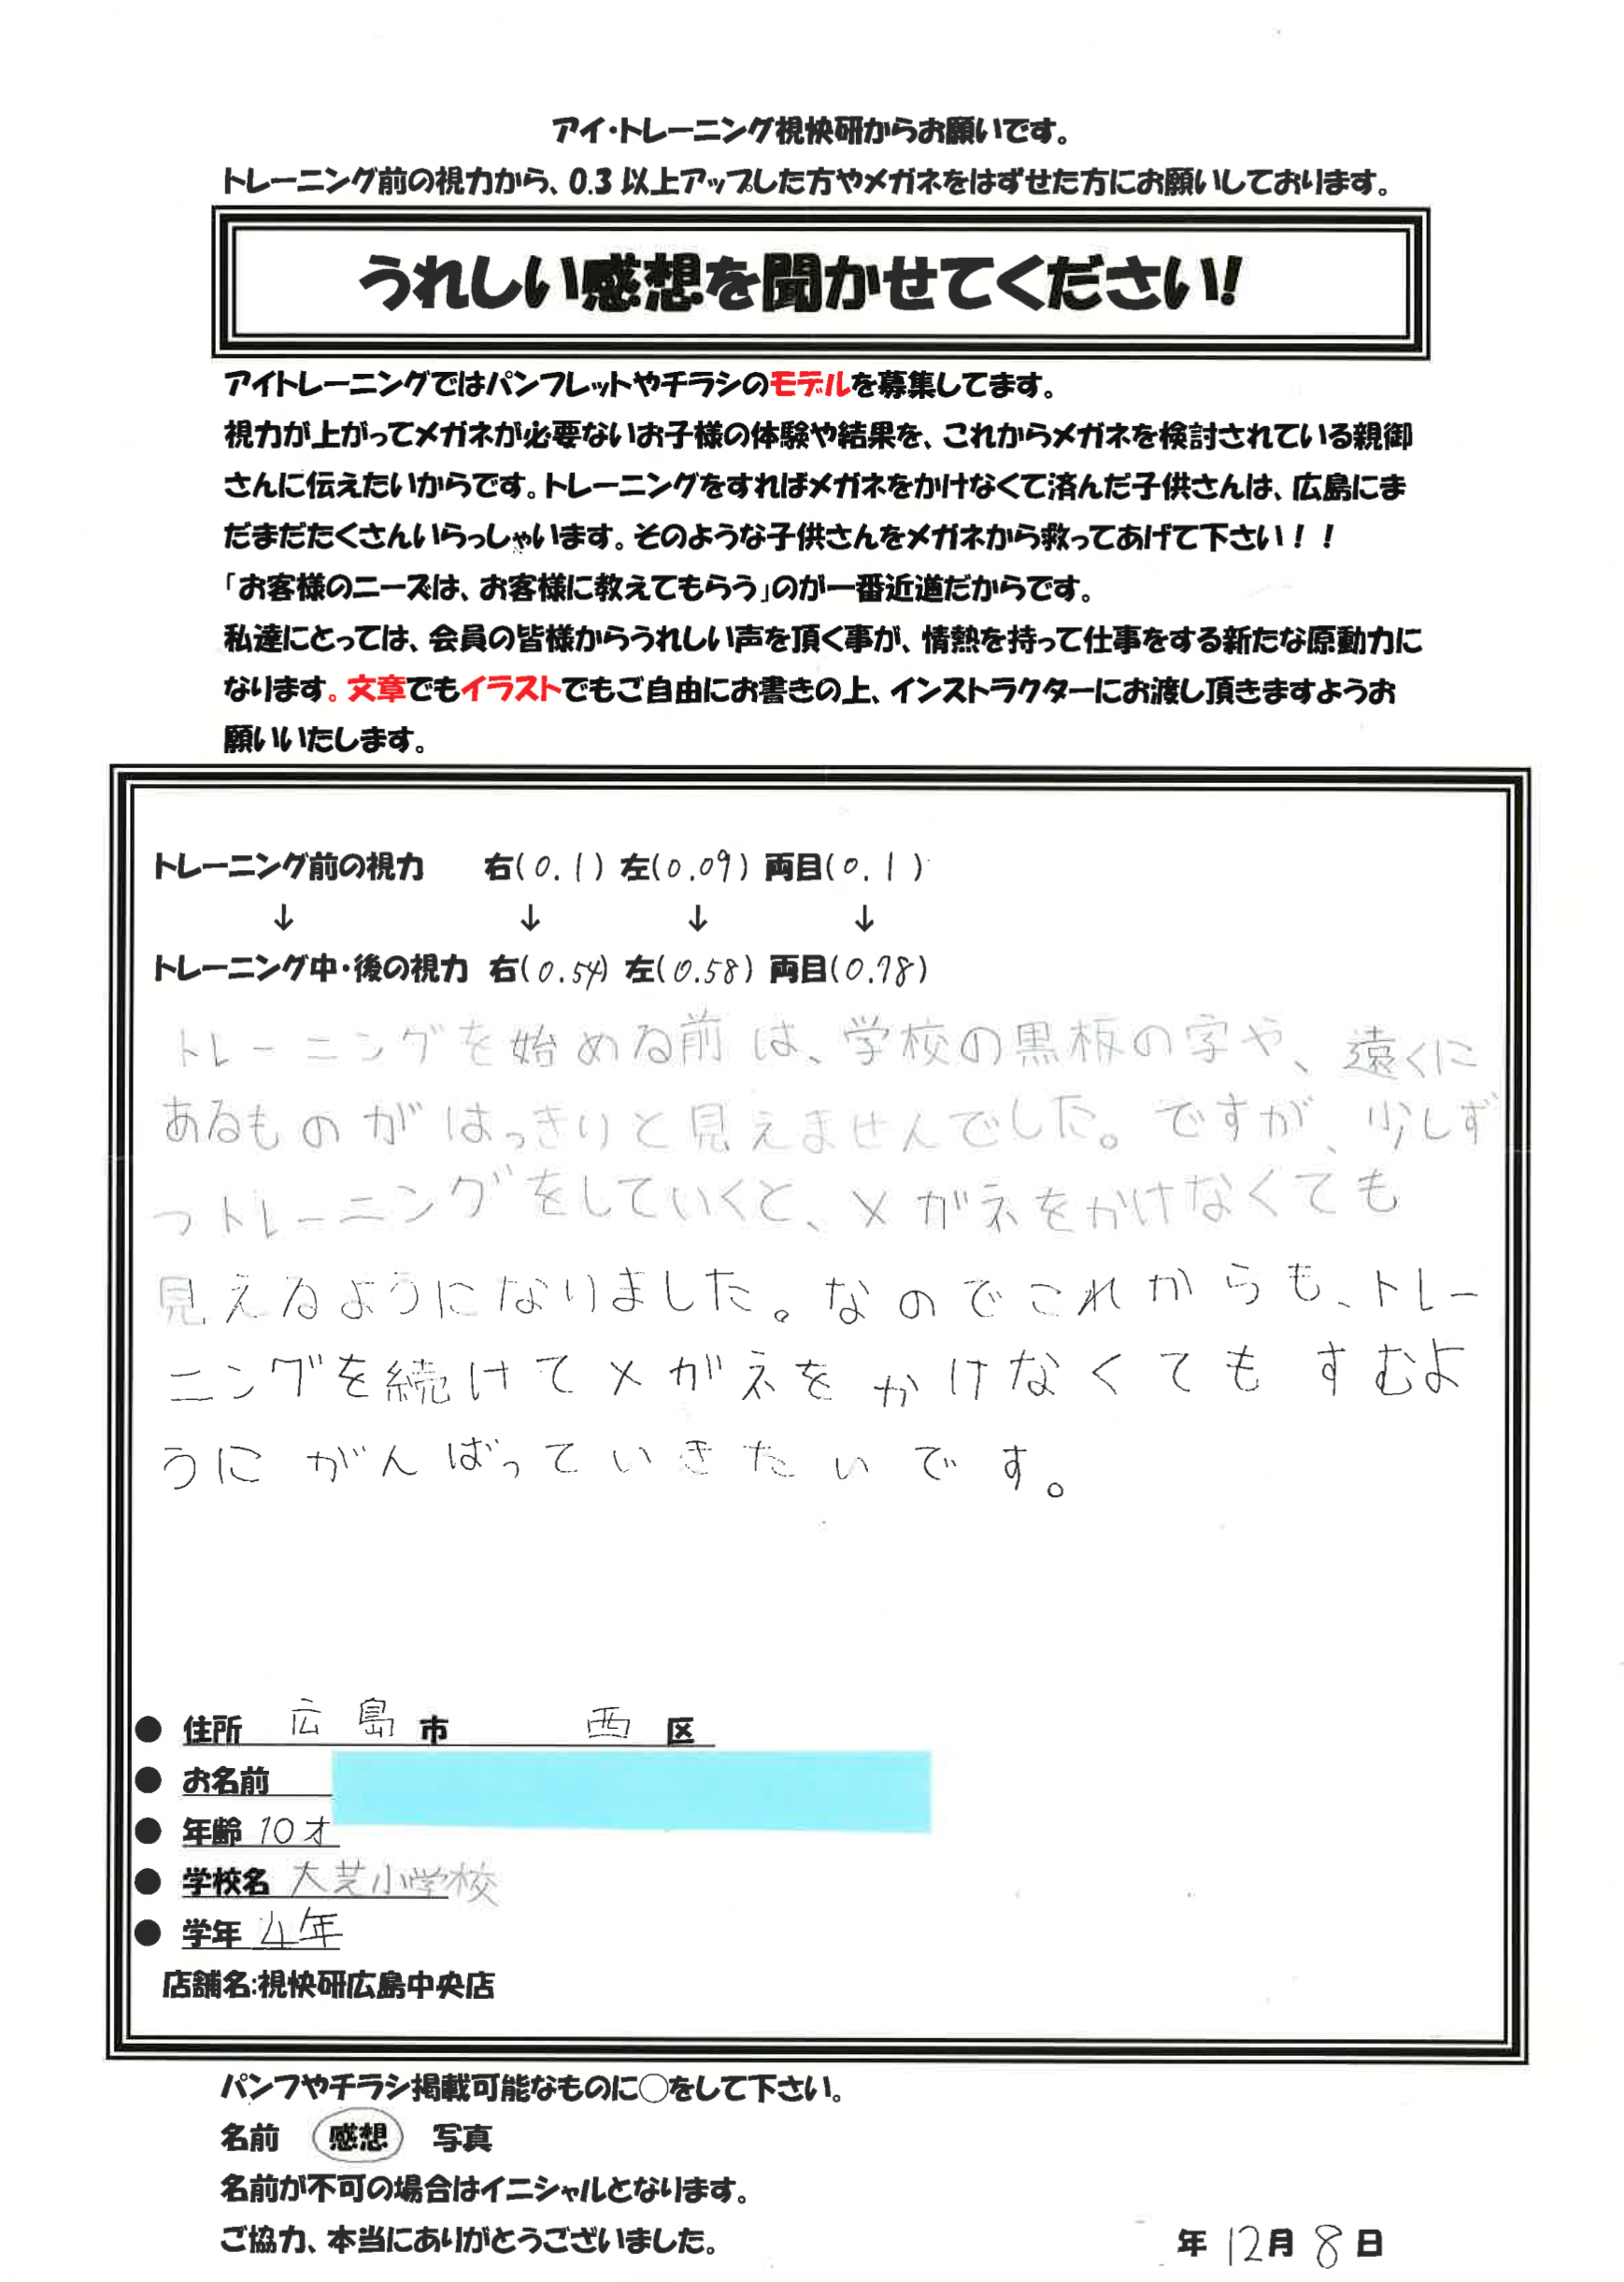 アイ・トレーニング視快研からお願いです。
トレーニング前の視力から、0.3 以上アップした方やメガネをはずせた方にお願いしております。
うれしい感想を聞かせてください!
アイトレーニングではパンフレットやチラシのモデルを募集してます。
視力が上がってメガネが必要ないお子様の体験や結果を、これからメガネを検討されている親御
さんに伝えたいからです。トレーニングをすればメガネをかけなくて済んだ子供さんは、広島にま
だまだたくさんいらっしゃいます。そのような子供さんをメガネから救ってあげて下さい！！
「お客様のニーズは、お客様に教えてもらう」のが一番近道だからです。
私達にとっては、会員の皆様からうれしい声を頂く事が、情熱を持って仕事をする新たな原動力に
なります。文章でもイラストでもご自由にお書きの上、インストラクターにお渡し頂きますようお
願いいたします。
トレーニング前の視力 右(0.1) 左(0.09) 両目(0.1)
↓ ↓ ↓ ↓
トレーニング中・後の視力 右(0.54) 左(0.58) 両目(0.78)
トレーニングを始める前は、学校の黒板の字や、遠くに
あるものがはっきりと見えませんでした。ですが、少しず
つトレーニングをしていくと、メガネをかけなくても
見えるようになりました。なのでこれからも、トレー
ニングを続けてメガネをかけなくてもすむよ
うにがんばっていきたいです。
● 住所 広島市 西区
● お名前
● 年齢 10才
● 学校名 大芝小学校
● 学年 4年
店舗名:視快研広島中央店
パンフやチラシ掲載可能なものに○をして下さい。
名前 感想 写真
名前が不可の場合はイニシャルとなります。
ご協力、本当にありがとうございました。 年12月8日